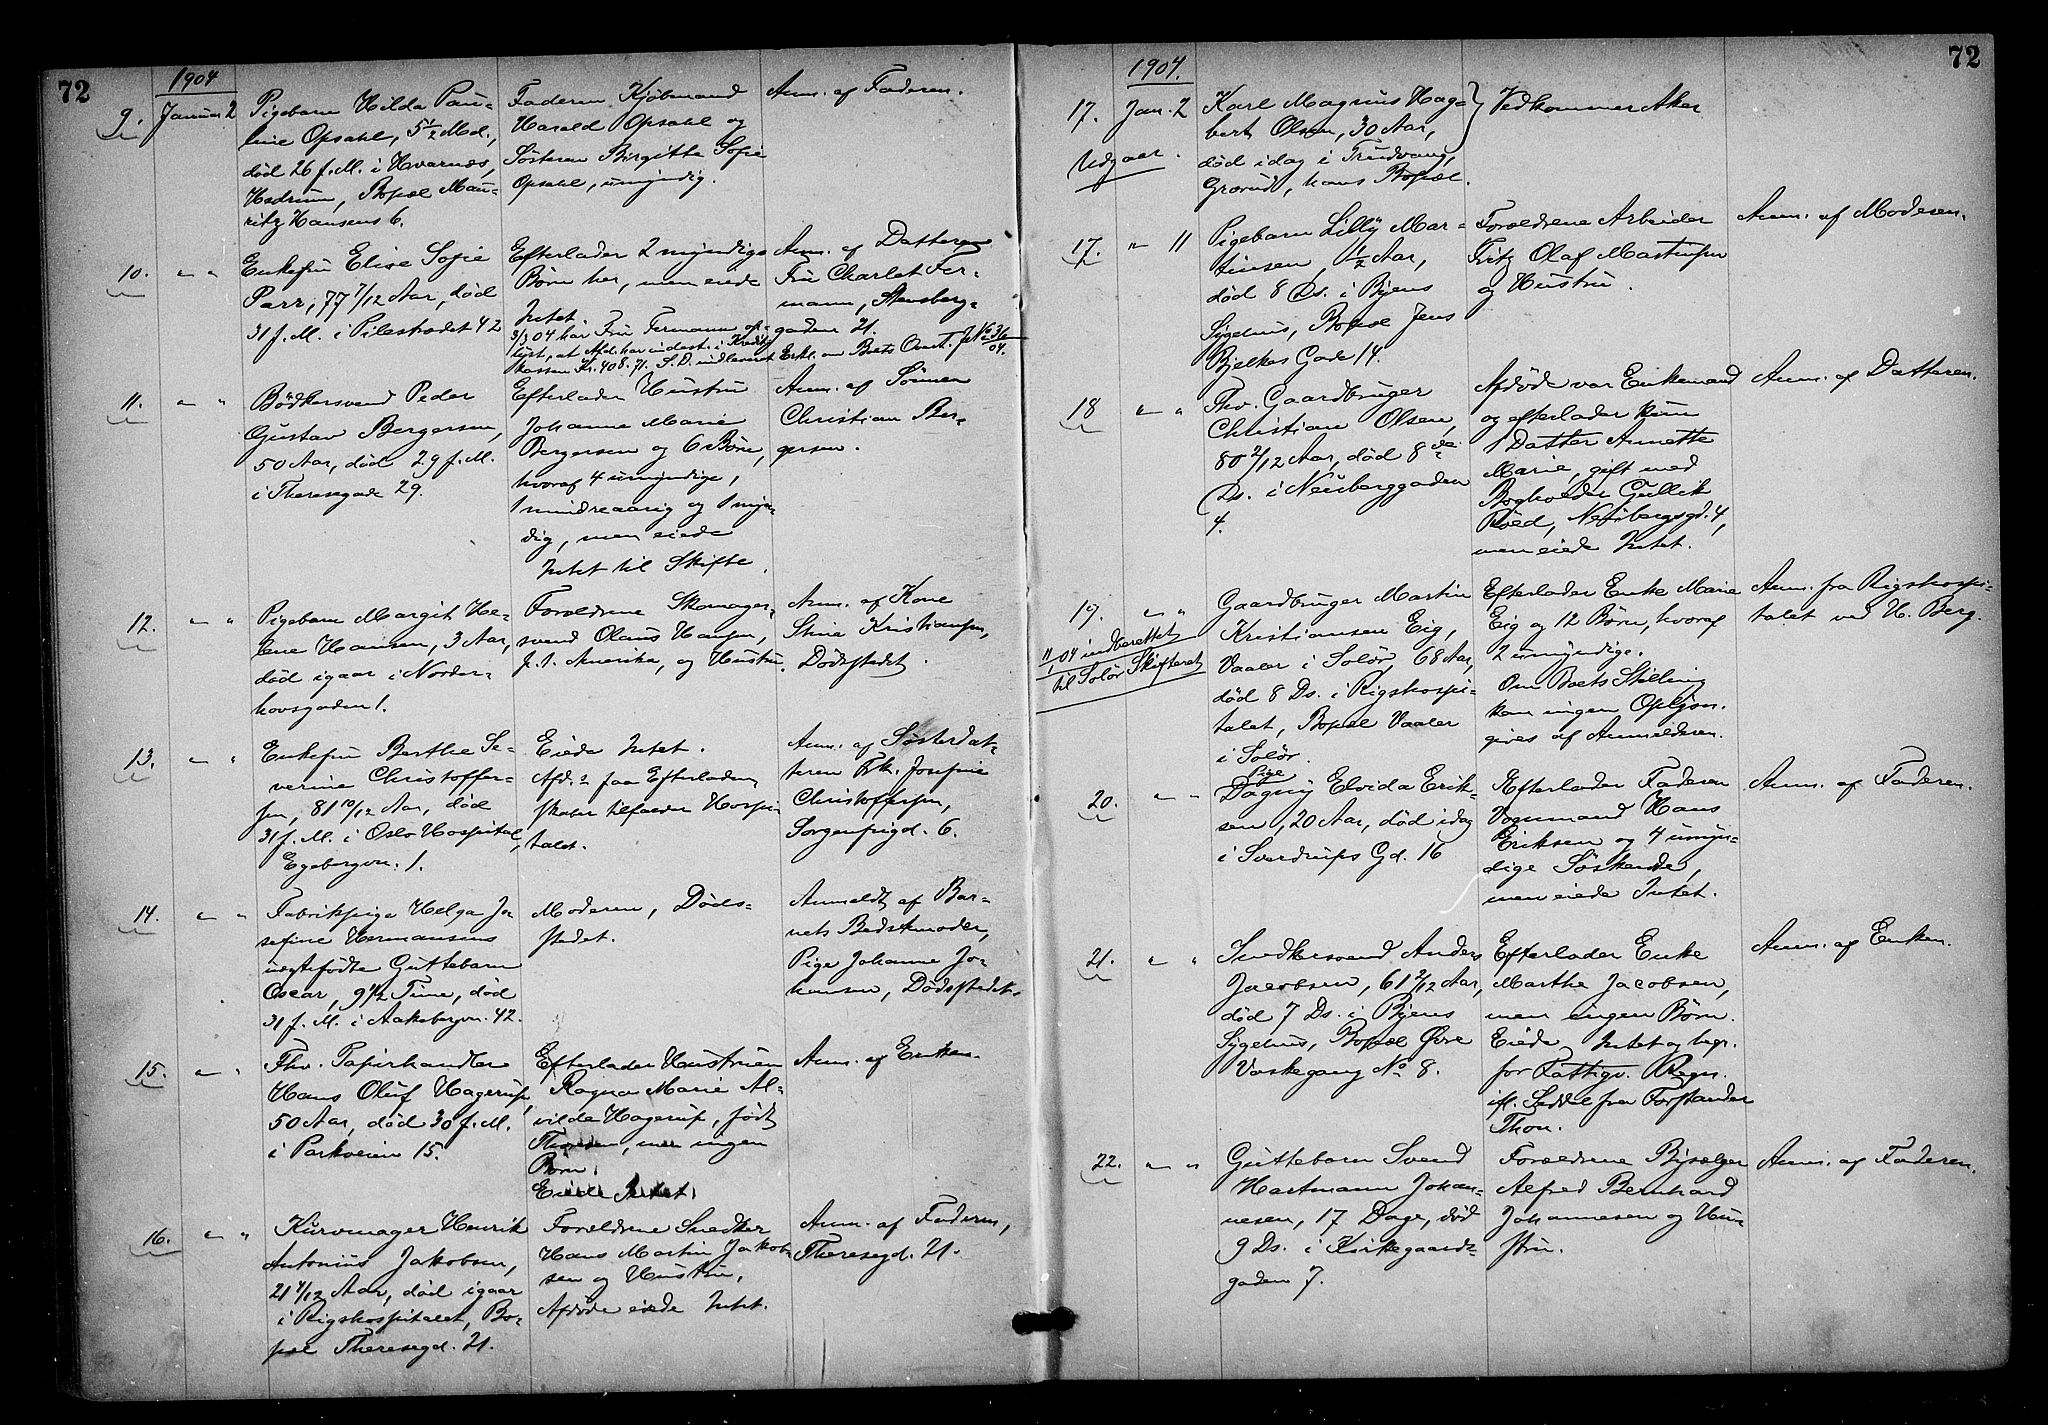 72
1904
9.
Januar 2
Pigebarn Hilda Pau-
line Opsahl, 5 1/2 Md.,
død 26 f. M. i Hvarnæs,
Hedrum, Bopæl Mau-
ritz Hansens 6.
Faderen Kjøbmand
Harald Opsahl og
Søsteren Birgitte Sofie
Opsahl, umyndig.
Anm. af Faderen.
10.
" "
Enkefru Elise Sofie
Parr, 77 7/12 Aar, død
31 f. M. i Pilestrædet 42
Efterlader 2 myndige
Børn her, men eiede
Intet
3/3 04 har Fru Fermann op-
lyst, at Afd. har indest. i Kredit-
kassen Kr. 408.71. S. D. indleveret
Anm. af Datteren
Fru Charlot Fer-
mann, Stensberg-
gaden 21.
Erkl. om Boets Overt. J. No 36/04.
11.
" "
Bødkersvend Peder
Gustav Bergersen,
50 Aar, død 29 f. M.
i Theresegade 29.
Efterlader Hustru
Johanne Marie
Bergersen og 6 Børn,
hvoraf 4 umyndige,
1 mindreaarig og 1 myn-
dig, men eiede
Intet til Skifte.
Anm. af Sønnen
Christian Ber-
gersen.
12.
" "
Pigebarn Margit He-
lene Hansen, 3 Aar,
død igaar i Norder-
hovsgaden 1.
Forældrene Skomager-
svend Olaus Hansen,
f. t. Amerika, og Hustru.
Anm. af Kone
Stina Kristiansen,
Dødsstedet.
13.
" "
Enkefru Berthe Se-
verine Christoffer-
sen, 81 10/12 Aar, død
31 f. M. i Oslo Hospital,
Egebergvn. 1.
Eiede Intet.
Afd. faa Efterladen-
skaber tilfalder Hospi-
talet.
Anm. af Søsterdat-
teren Frk. Josefine
Christoffersen,
Sorgenfrigd. 6.
14.
" "
Fabrikpige Helga Jo-
sefine Hermansens
uægtefødte Guttebarn
Oscar, 9 1/2 Time, død
31 f. M. i Aakebergvn. 42.
Moderen, Døds-
stedet.
Anmeldt af Bar-
nets Bedstemoder,
Pige Johanne Jo-
hansen, Dødsstedet.
15.
" "
Fhv. Papirhandler
Hans Oluf Hagerup,
50 Aar, død 30 f. M.
i Parkveien 15.
Efterlader Hustruen
Ragna Marie Al-
vilde Hagerup, født
men ingen
Børn.
Eiede Intet.
Anm. af Enken.
16.
" "
Kurvmager Henrik
Antonius Jakobsen,
21 4/12 Aar, død igaar
i Rigshospitalet, Bo-
pæl Theresegd. 21.
Forældrene Snedker
Hans Martin Jakob-
sen og Hustru,
Afdøde eiede Intet.
Anm. af Faderen,
Theresegd. 21.
72
1904.
17.
Udgaar.
Jan. 2
Karl Magnus Hag-
bert Olsen, 30 Aar,
død idag i Trudvang,
Grorud, hans Bopæl.
Vedkommer Aker
17.
" 11
Pigebarn Lilly Mar-
tinsen, 1/2 Aar,
død 8 Ds. i Byens
Sygehus, Bopæl Jens
Bjelkes Gade 14.
Forældrene Arbeider
Fritz Olaf Martinsen
og Hustru.
Anm. af Moderen.
18
" "
Fhv. Gaardbruger
Christian Olsen,
80 2/12 Aar, død 8de
Ds. i Neuberggaden
4.
Afdøde var Enkemand
og efterlader kun
1 Datter Annette
Marie, gift med
Bogholder Gullik
Røed, Neubergsgd. 4,
men eiede Intet.
Anm. af Datteren.
19.
11/1 04 indberettet
til Solør Skifteret
" "
Gaardbruger Martin
Kristiansen Eig,
Vaaler i Solør, 68 Aar,
død 8 Ds. i Rigshospi-
talet, Bopæl Vaaler
i Solør.
Efterlader Enke Marie
Eig og 12 Børn, hvoraf
2 umyndige.
Om Boets Stilling
kan ingen Oplysn.
gives af Anmelderen.
Anm. fra Rigshospi-
talet ved H. Berg.
20.
" "
Pige
Dagny Elvida Erik-
sen, 20 Aar, død idag
i Sverdrups Gd. 16
Efterlader Faderen
Vognmand Hans
Eriksen og 4 umyn-
dige Søskende,
men eiede Intet.
Anm. af Faderen.
21.
" "
Snedkersvend Anders
Jacobsen, 61 2/12 Aar,
død 7 Ds. i Byens
Sygehus, Bopæl Øvre
Vaskegang No 8.
Efterlader Enke
Marthe Jacobsen,
men ingen Børn.
Eiede Intet og begr.
for Fattigv. Regn.
ifl. Seddel fra Forstander
Thon.
Anm. af Enken.
22.
" "
Guttebarn Svend
Hartmann Johan-
nesen, 17 Dage, død
9 Ds. i Kirkegaards-
gaden 7.
Forældrene Bysælger
Alfred Bernhard
Johannesen og Hu-
stru.
Anm. af Faderen.